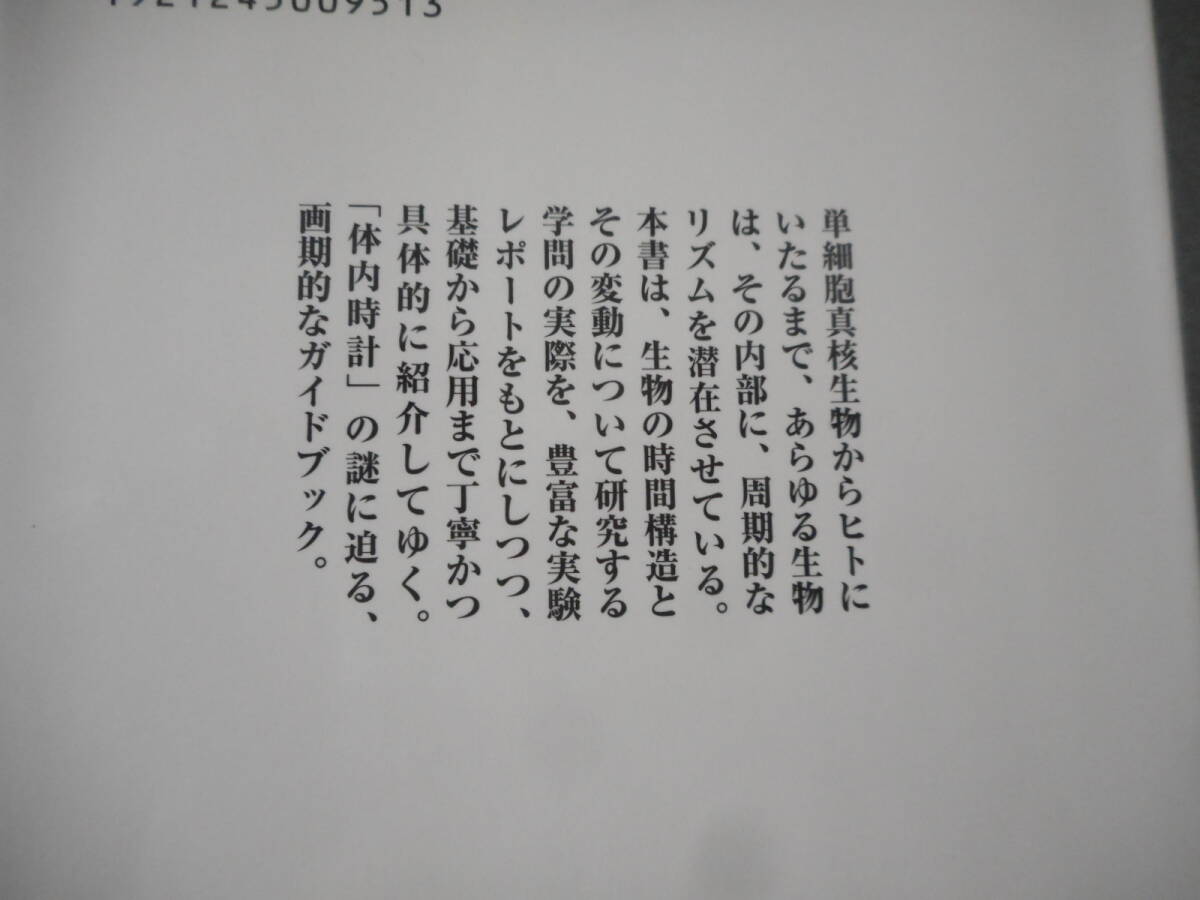 1921245009513
単細胞真核生物からヒトに
いたるまで、あらゆる生物
は、その内部に、周期的な
リズムを潜在させている。
本書は、生物の時間構造と
その変動について研究する
学問の実際を、豊富な実験
レポートをもとにしつつ、
基礎から応用まで丁寧かつ
具体的に紹介してゆく。
「体内時計」の謎に迫る、
画期的なガイドブック。